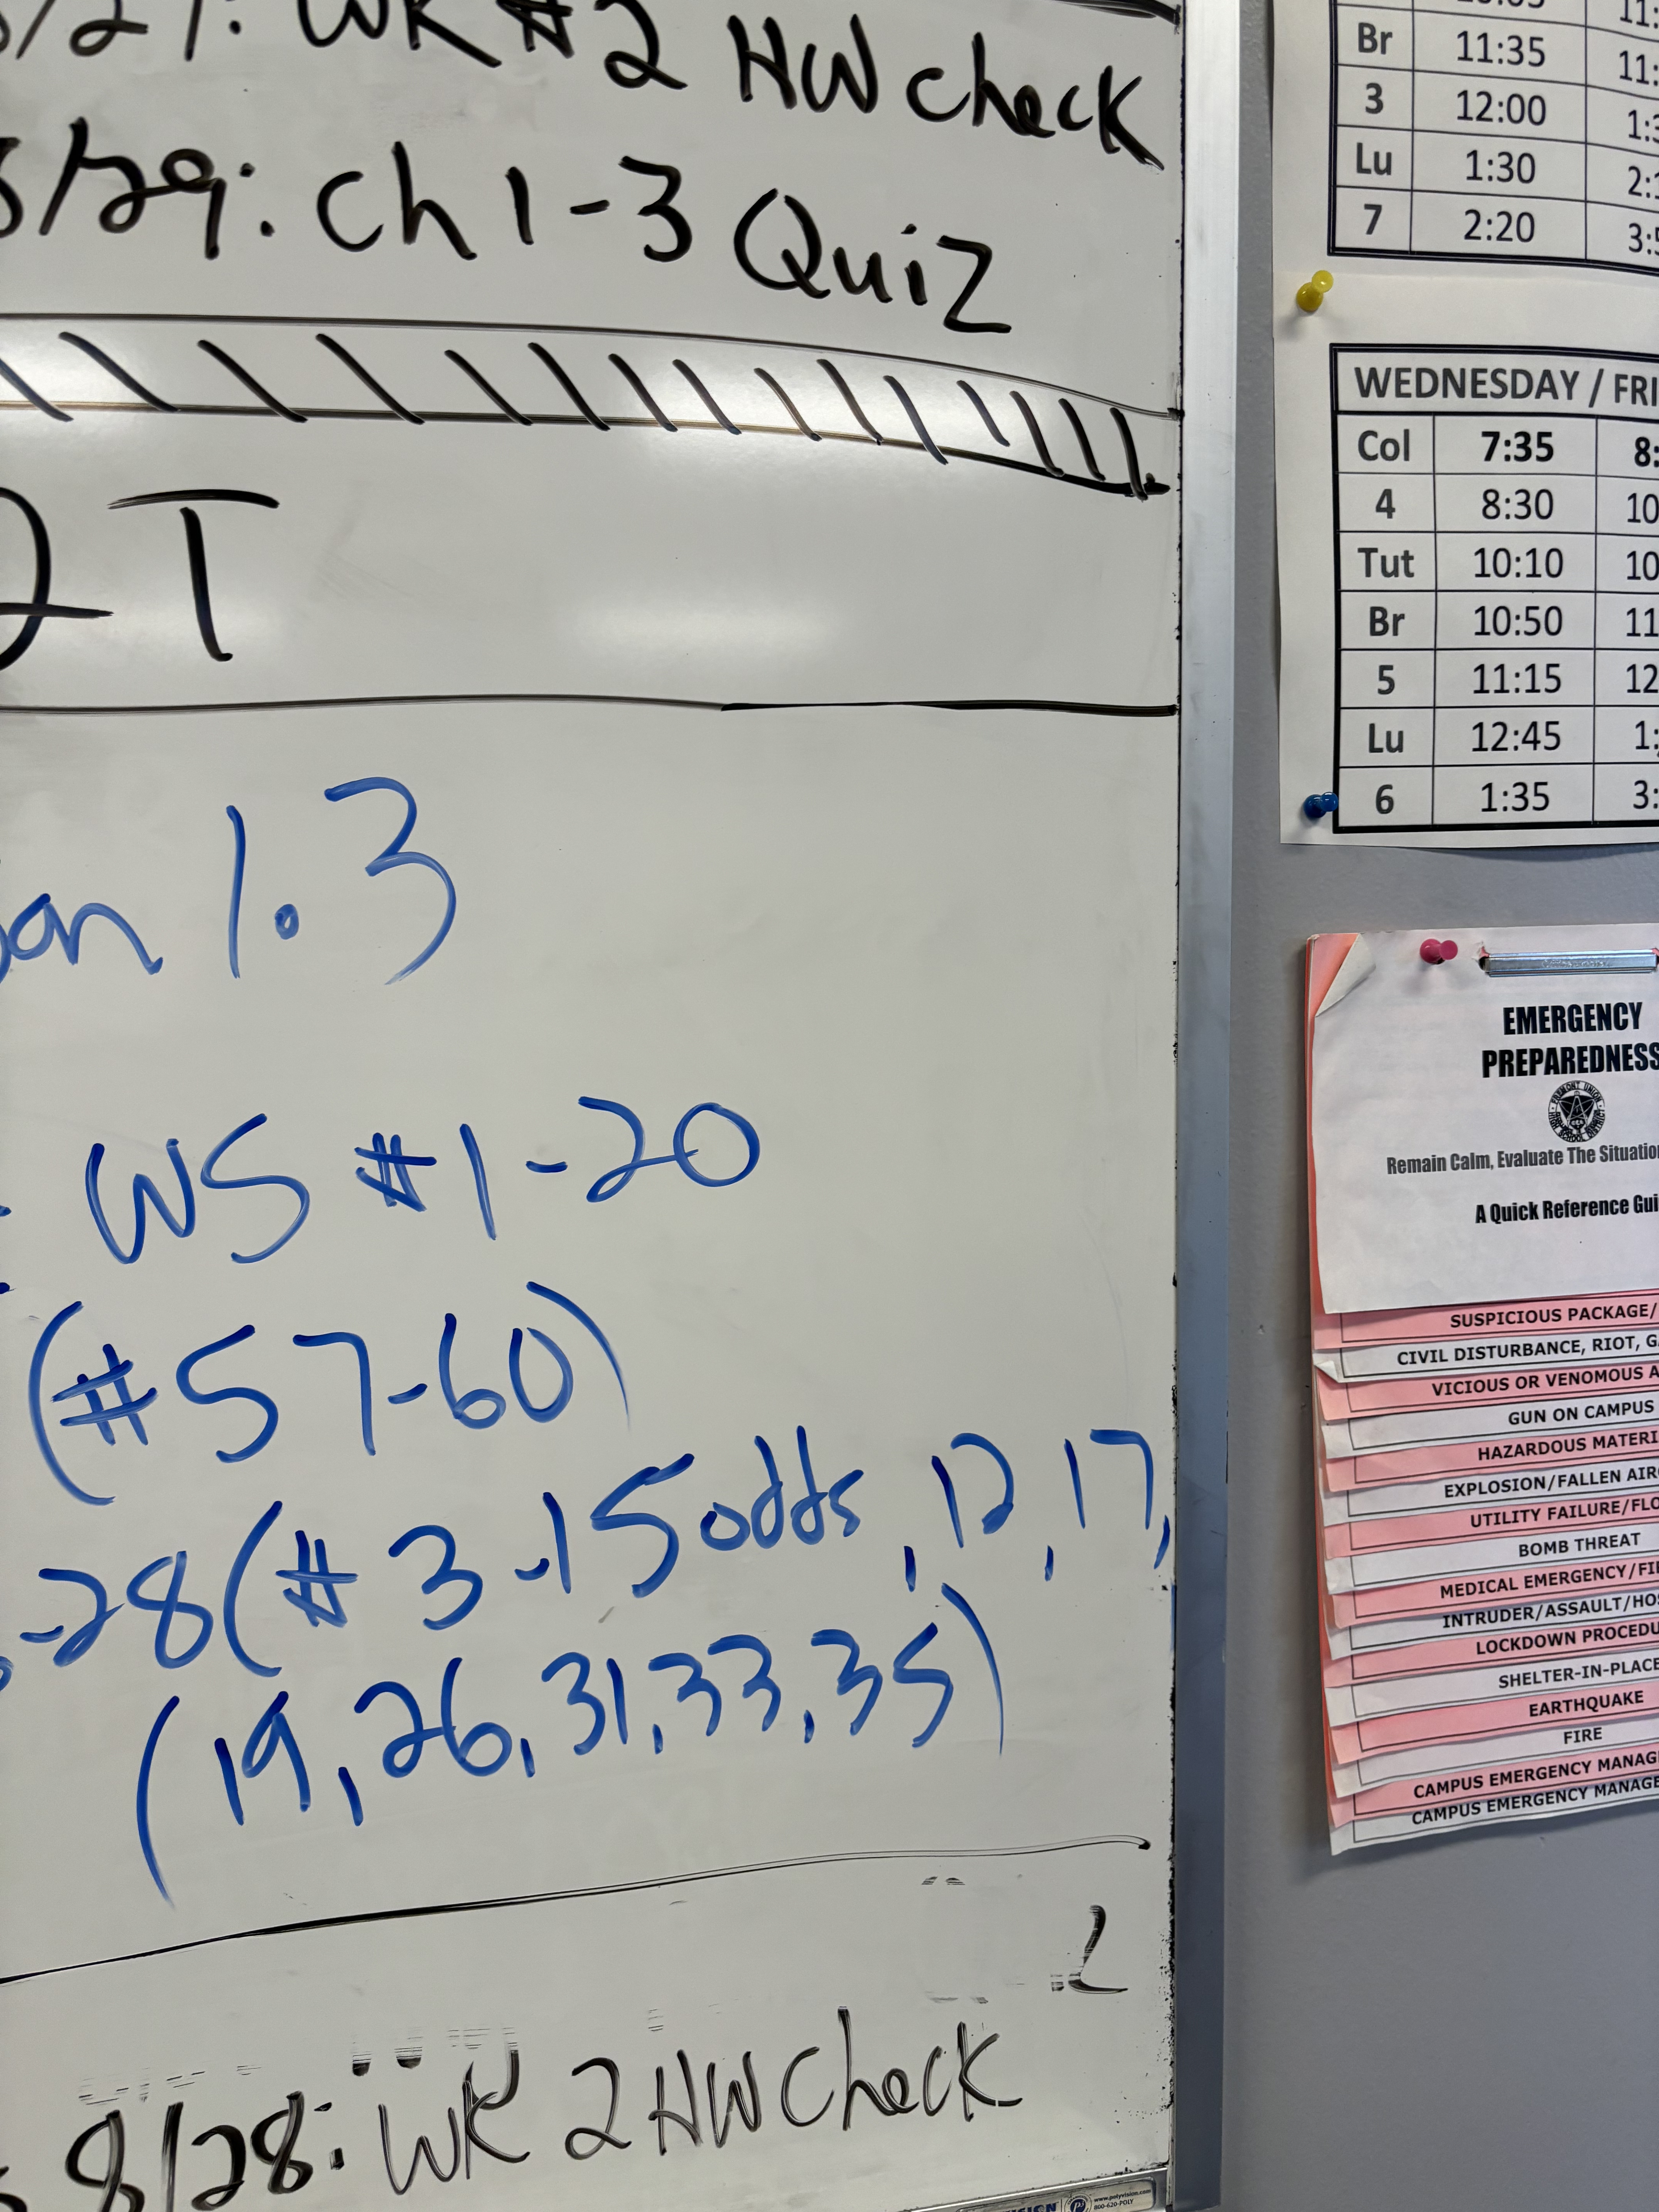 /27: WK #2 HW check
8/29: Ch 1-3 Quiz
T
on 1.3
WS #1-20
(#57-60)
-28 (#3-15 odds, 12, 17,
(19, 26, 31, 33, 35)
.2
8/28: WK 2 HW Check
Br 11:35 11:
3 12:00 1:3
Lu 1:30 2:
7 2:20 3:5
WEDNESDAY / FRI
Col 7:35 8:
4 8:30 10
Tut 10:10 10
Br 10:50 11
5 11:15 12
Lu 12:45 1:
6 1:35 3:
EMERGENCY
PREPAREDNESS
Remain Calm, Evaluate The Situation
A Quick Reference Gui
SUSPICIOUS PACKAGE/
CIVIL DISTURBANCE, RIOT, G
VICIOUS OR VENOMOUS A
GUN ON CAMPUS
HAZARDOUS MATERI
EXPLOSION/FALLEN AIR
UTILITY FAILURE/FLO
BOMB THREAT
MEDICAL EMERGENCY/FI
INTRUDER/ASSAULT/HOS
LOCKDOWN PROCEDU
SHELTER-IN-PLACE
EARTHQUAKE
FIRE
CAMPUS EMERGENCY MANAG
CAMPUS EMERGENCY MANAGE
www.polyvision.com
800-620-POLY